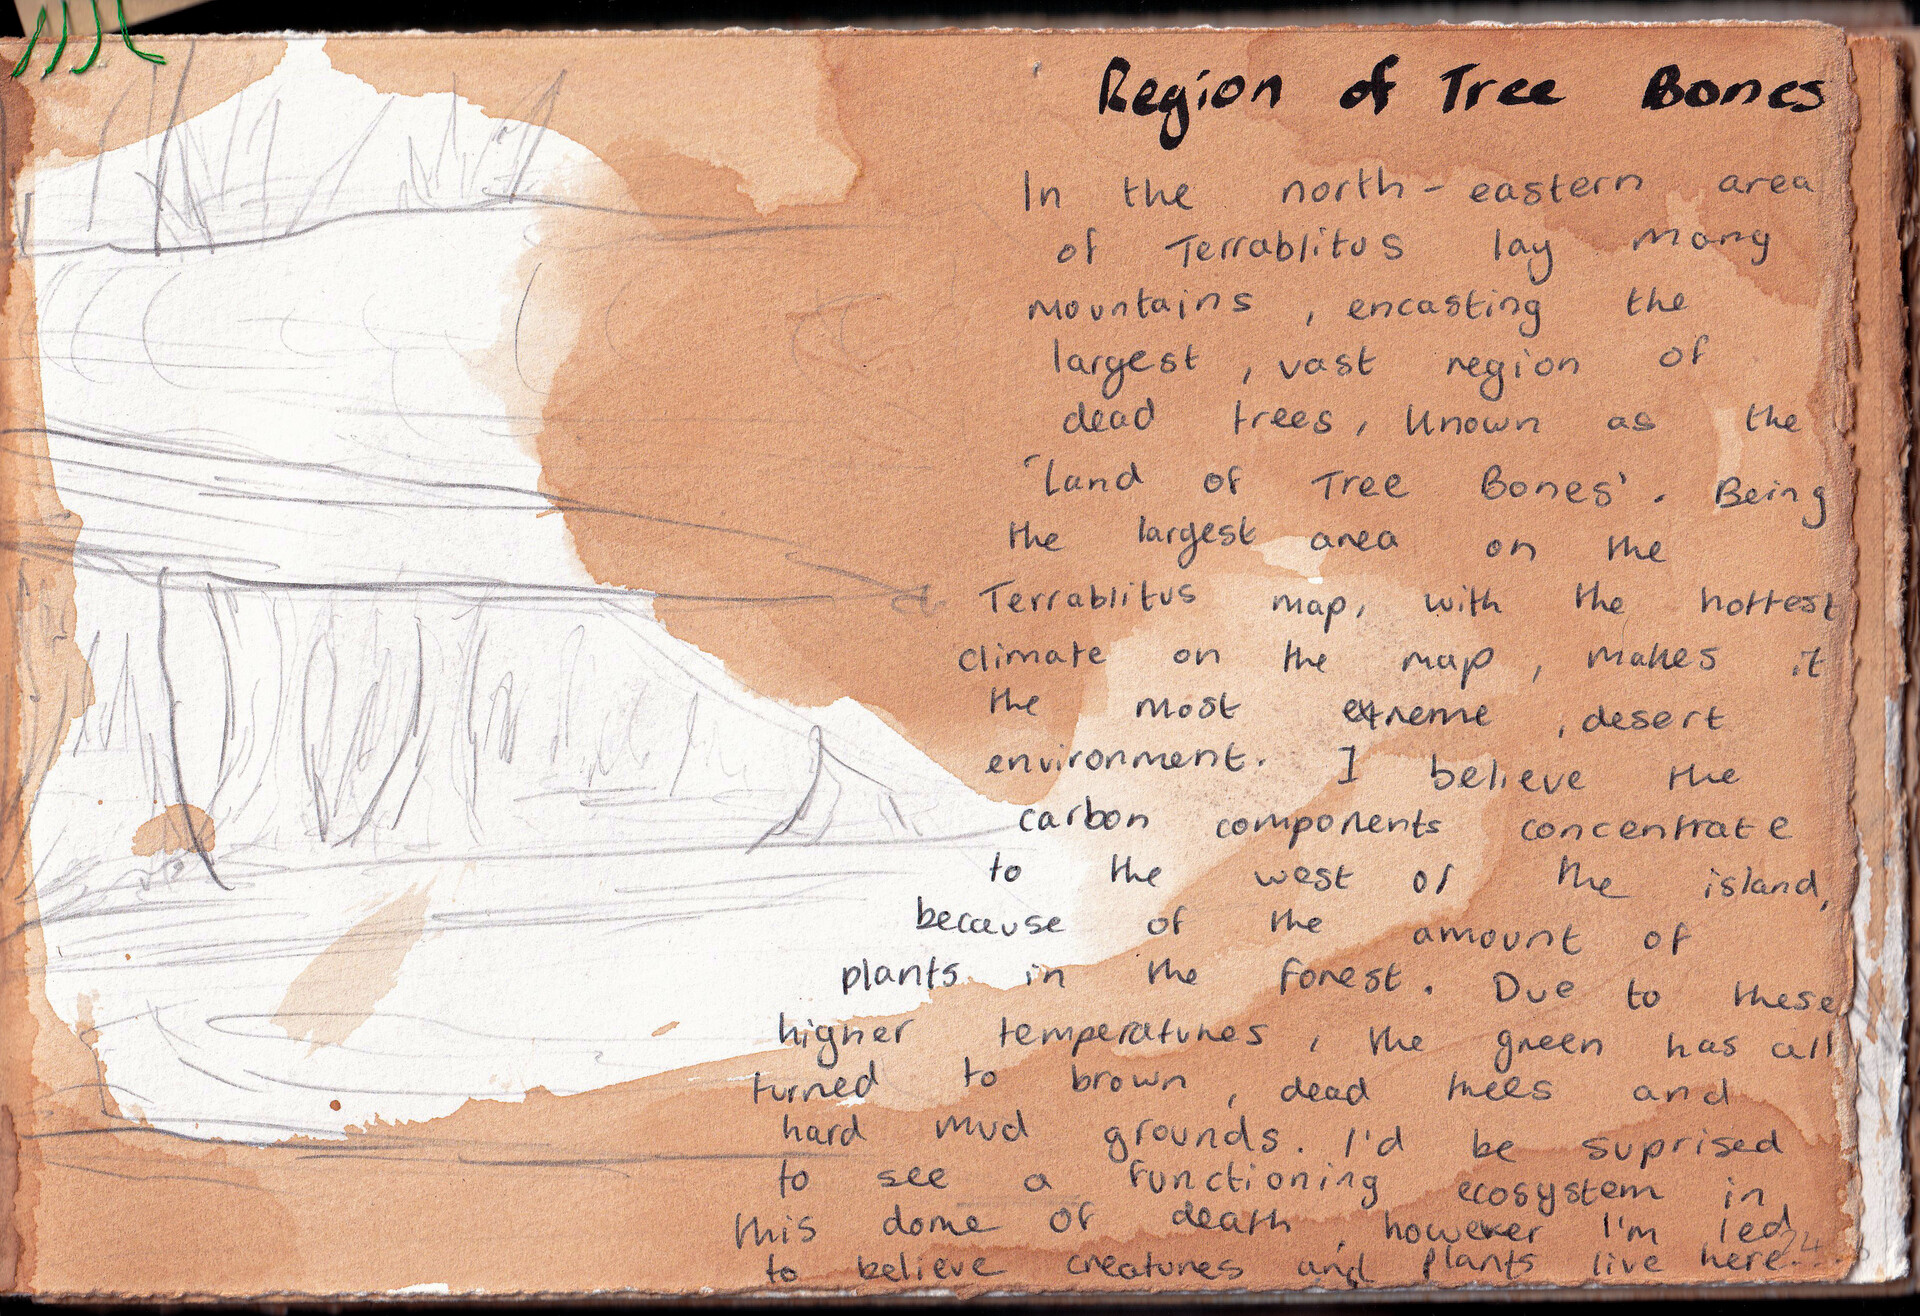 Region of Tree Bones
In the north-eastern area
of Terrablitus lay many
mountains, encasting the
largest, vast region of
dead trees, known as the
'Land of Tree Bones'. Being
the largest area on the
Terrablitus map, with the hottest
climate on the map, makes it
the most extreme, desert
environment. I believe the
carbon components concentrate
to the west of the island,
because of the amount of
plants in the forest. Due to these
higher temperatures, the green has all
turned to brown, dead trees and
hard mud grounds. I'd be suprised
to see a functioning ecosystem in
this dome of death, however I'm led
to believe creatures and plants live here...
24